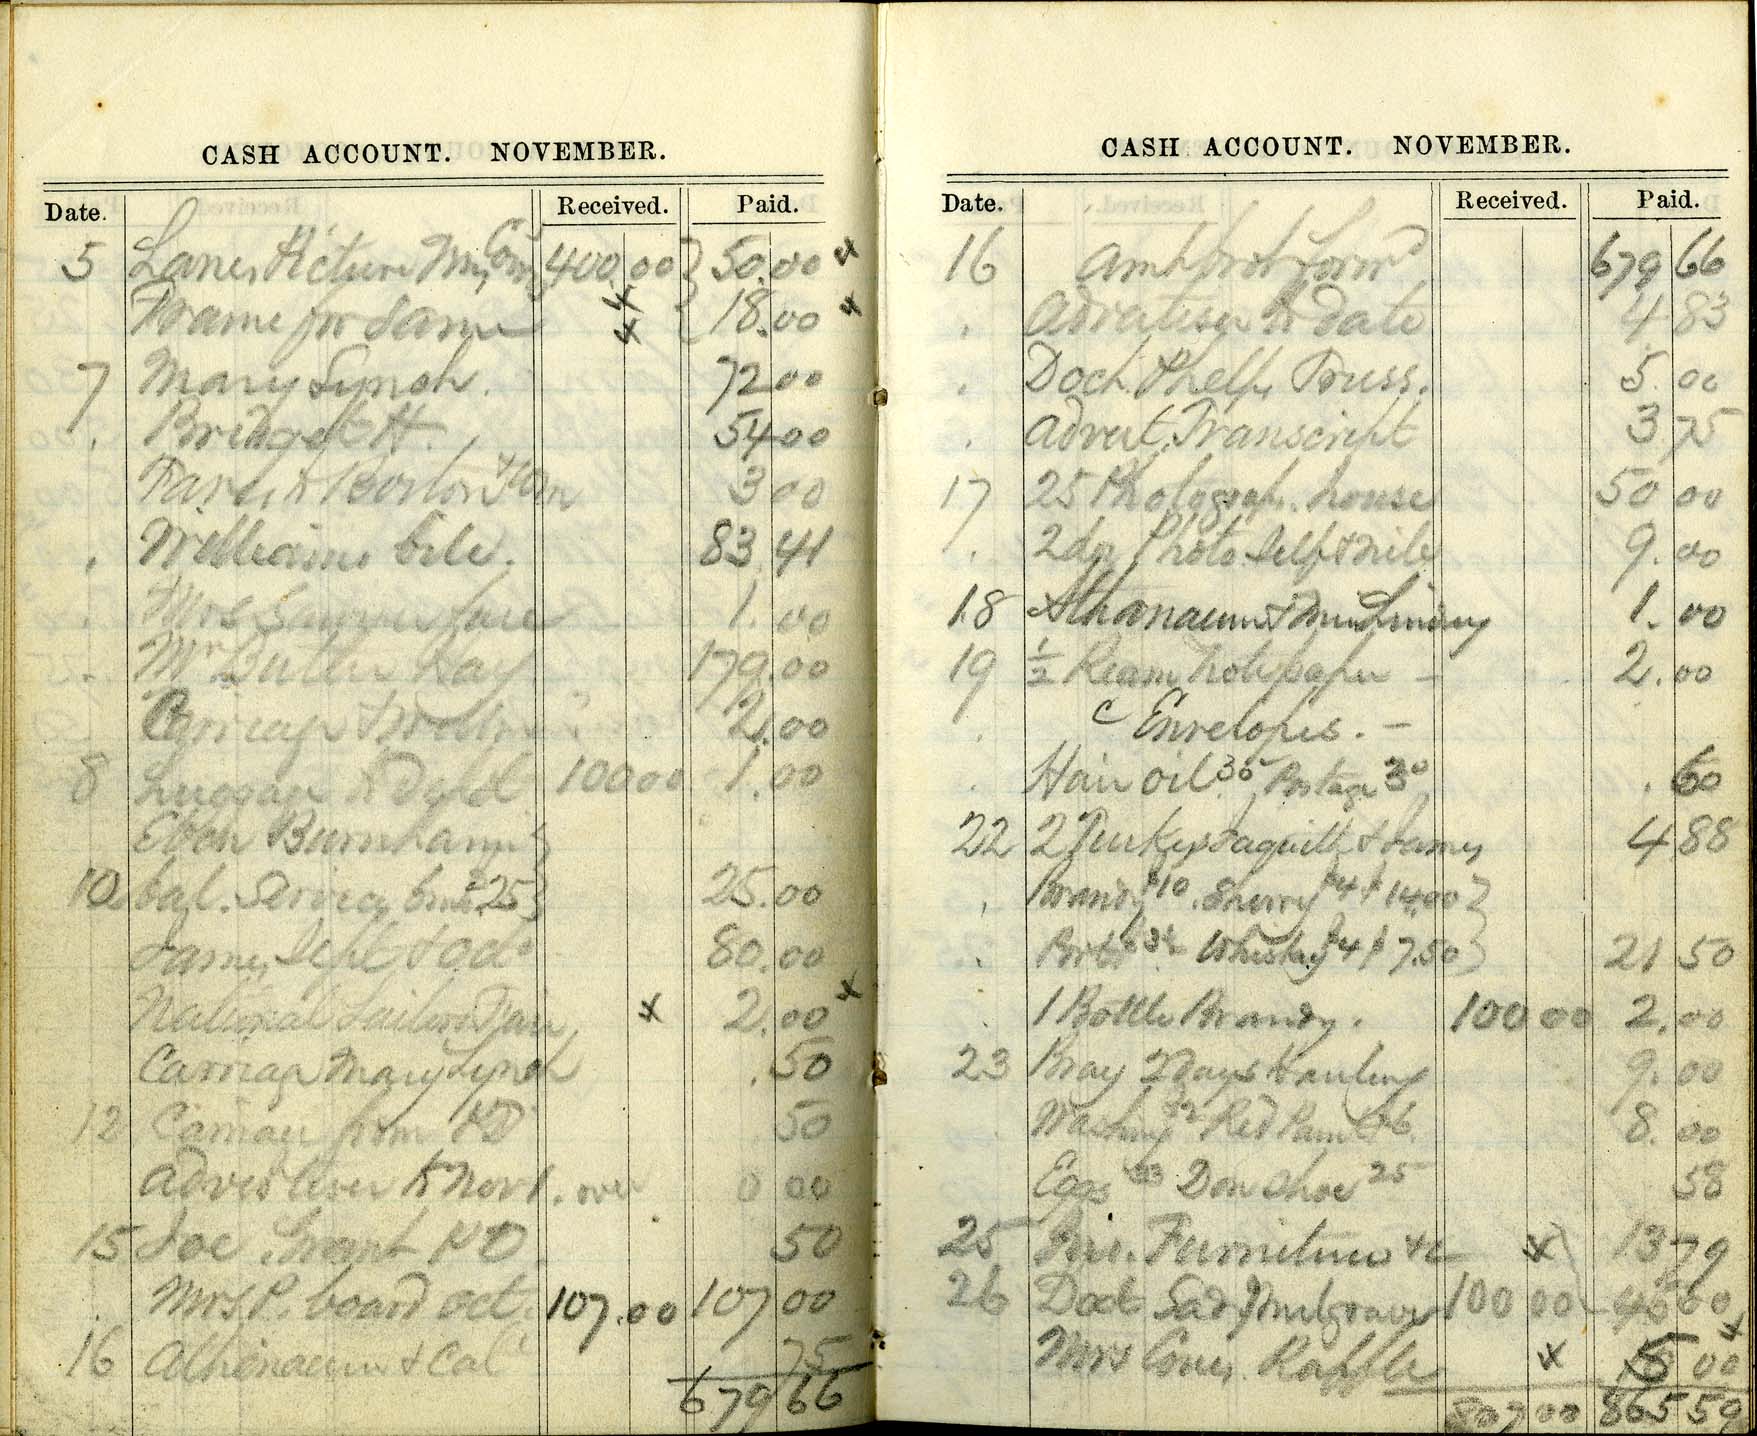 CASH ACCOUNT. NOVEMBER.
Date. Received. Paid.
5 Lanes Picture 400.00 50.00 x
Frame for Same x x 18.00 x
7 Mary Lynch. 72 00
. Bridget H. 54 00
Fares to Boston 3 00
. Williams bile. 83.41
. Mrs fare 1.00
. Mr Butler Hay 179.00
Carriage 2.00
8 Luggage 100 00 1.00
Eben Burnham
10 bal. Service 25 25.00
James Sept & Oct 80.00
National Sailors Fair x 2.00 x
Carriage Mary Lynch .50
12 Carriage from 50
Advertiser to Nov 1. over 0 00
15 Joe Grant 50
. Mrs P. board oct. 107.00 107 00
16 Athenaeum & Cal 75
679 66
CASH ACCOUNT. NOVEMBER.
Date. Received. Paid.
16 Amt brot forwd 679 66
. Advertiser to date 4 83
. Doct. Phelps Truss. 5.00
. Advert. Transcript 3 75
17 25 Photograph. house 50 00
. 2 Photo Self & 9.00
18 Athanaeum & 1.00
19 1/2 Ream Note paper - 2.00
. C Envelopes. -
. Hair oil 35 Postage 30 . 60
22 2 Turkeys & James 4 88
. Brandy $10. Sherry $4 $14.00
. Whiskey $4 $7.50 21 50
. 1 Bottle Brandy. 100 00 2.00
23 Bray 2 Days 9.00
Washing 8.00
Eggs 33 Don shoe 25 58
25 Furniture &c x 13 79
26 Doct 100 00
Mrs Raffle x 5 00 x
807 00 865 59